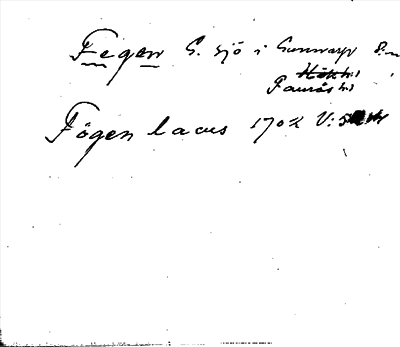 Fegen S. sjö i Gunnarp s:n
Faurås hd
Fögen lacus 1702 V:5